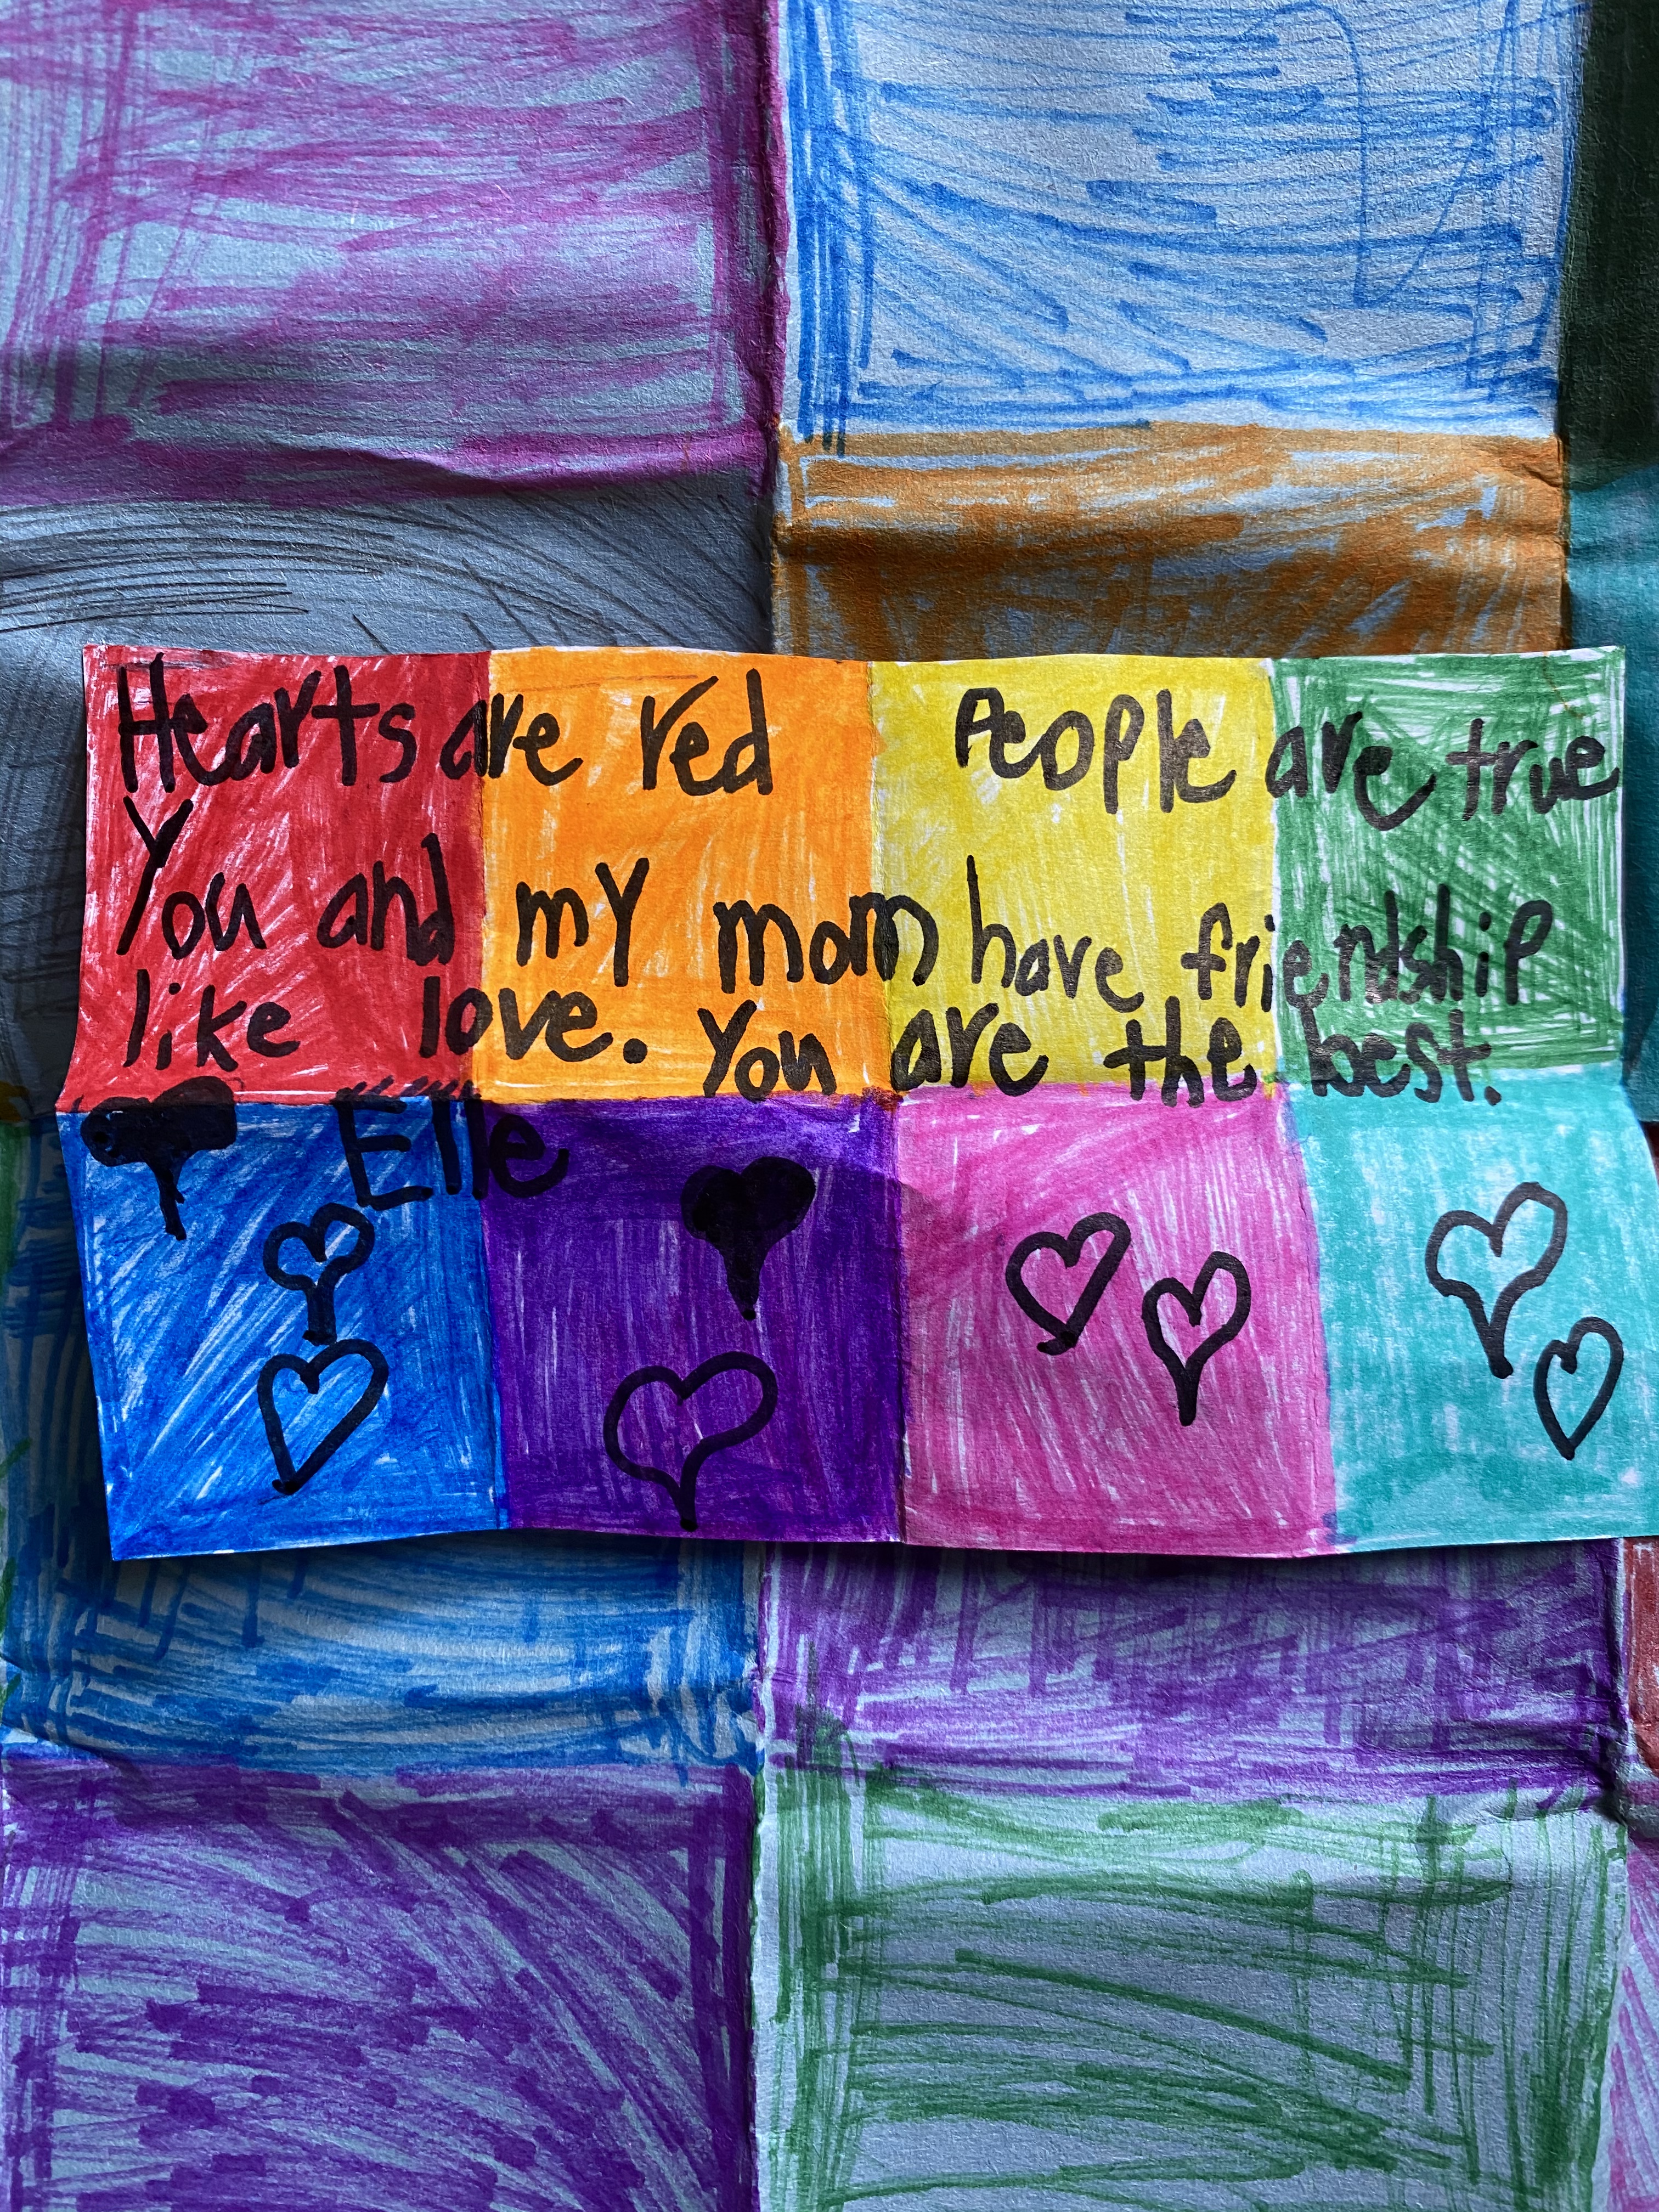 Hearts are red People are true
You and my mom have friendship
like love. You are the best.
Elle